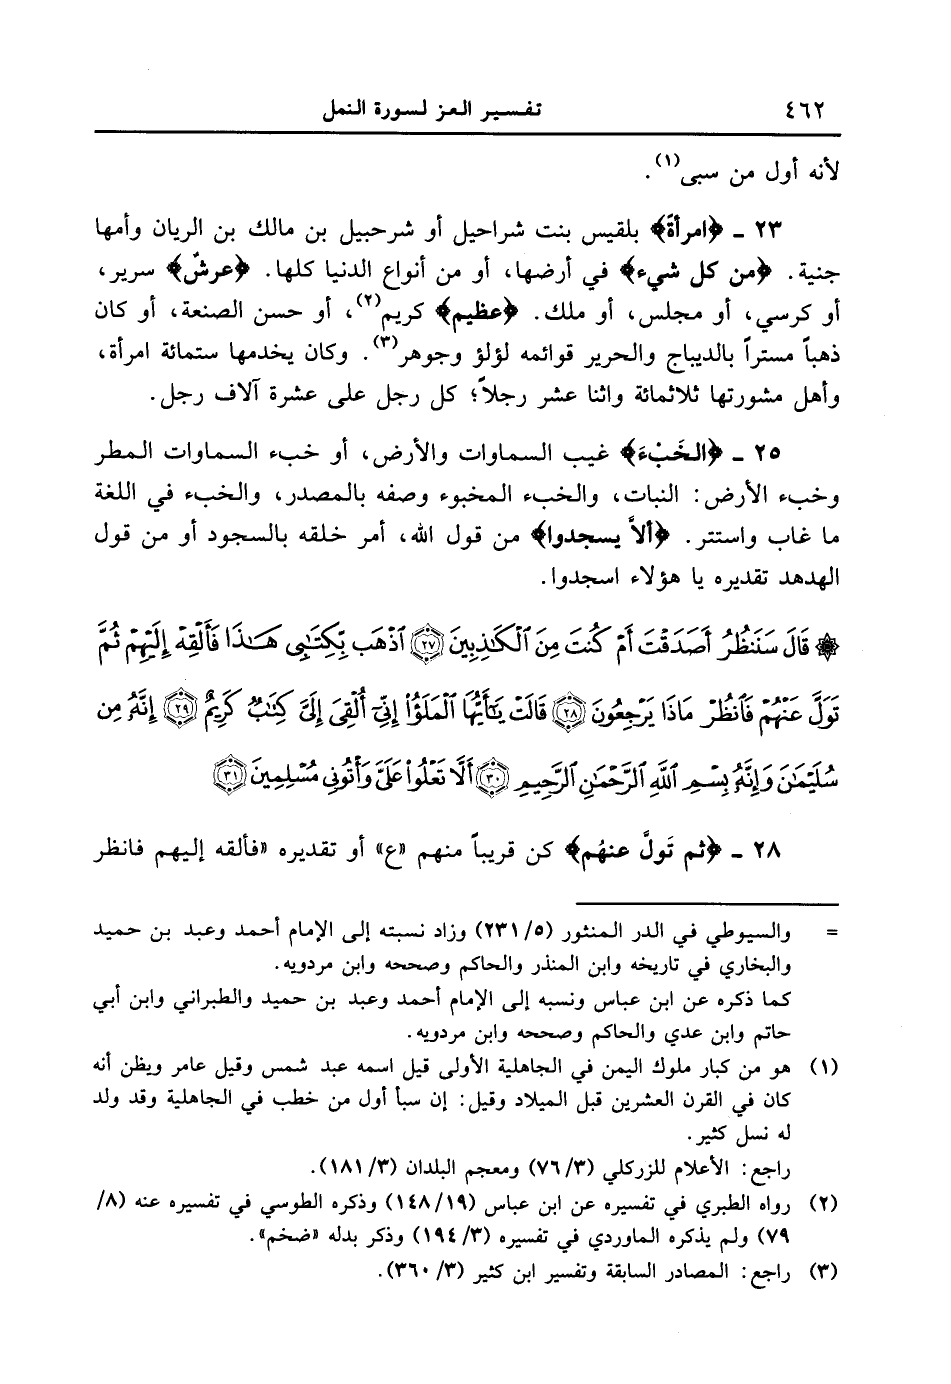 ٤٦٢ تفسير العز لسورة النمل
لأنه أول من سبى(١).
٢٣ ـ ﴿امرأةً﴾ بلقيس بنت شراحيل أو شرحبيل بن مالك بن الريان وأمها
جنية. ﴿من كل شيء﴾ في أرضها، أو من أنواع الدنيا كلها. ﴿عرشٌ﴾ سرير،
أو كرسي، أو مجلس، أو ملك. ﴿عظيم﴾ كريم(٢)، أو حسن الصنعة، أو كان
ذهباً مستراً بالديباج والحرير قوائمه لؤلؤ وجوهر(٣). وكان يخدمها ستمائة امرأة،
وأهل مشورتها ثلاثمائة واثنا عشر رجلاً؛ كل رجل على عشرة آلاف رجل.
٢٥ ـ ﴿الخَبْءَ﴾ غيب السماوات والأرض، أو خبء السماوات المطر
وخبء الأرض: النبات، والخبء المخبوء وصفه بالمصدر، والخبء في اللغة
ما غاب واستتر. ﴿ألاَّ يسجدوا﴾ من قول الله، أمر خلقه بالسجود أو من قول
الهدهد تقديره يا هؤلاء اسجدوا.
۞ قَالَ سَنَنظُرُ أَصَدَقْتَ أَمْ كُنتَ مِنَ ٱلْكَـٰذِبِينَ ٢٧ ٱذْهَب بِّكِتَـٰبِى هَـٰذَا فَأَلْقِهْ إِلَيْهِمْ ثُمَّ
تَوَلَّ عَنْهُمْ فَٱنظُرْ مَاذَا يَرْجِعُونَ ٢٨ قَالَتْ يَـٰٓأَيُّهَا ٱلْمَلَؤُا۟ إِنِّىٓ أُلْقِىَ إِلَىَّ كِتَـٰبٌ كَرِيمٌ ٢٩ إِنَّهُۥ مِن
سُلَيْمَـٰنَ وَإِنَّهُۥ بِسْمِ ٱللَّهِ ٱلرَّحْمَـٰنِ ٱلرَّحِيمِ ٣٠ أَلَّا تَعْلُوا۟ عَلَىَّ وَأْتُونِى مُسْلِمِينَ ٣١
٢٨ ـ ﴿ثم تَولَّ عنهُم﴾ كن قريباً منهم «ع» أو تقديره «فألقه إليهم فانظر
= والسيوطي في الدر المنثور (٢٣١/٥) وزاد نسبته إلى الإمام أحمد وعبد بن حميد
والبخاري في تاريخه وابن المنذر والحاكم وصححه وابن مردويه.
كما ذكره عن ابن عباس ونسبه إلى الإمام أحمد وعبد بن حميد والطبراني وابن أبي
حاتم وابن عدي والحاكم وصححه وابن مردويه.
(١) هو من كبار ملوك اليمن في الجاهلية الأولى قيل اسمه عبد شمس وقيل عامر ويظن أنه
كان في القرن العشرين قبل الميلاد وقيل: إن سبأ أول من خطب في الجاهلية وقد ولد
له نسل كثير.
راجع: الأعلام للزركلي (٧٦/٣) ومعجم البلدان (١٨١/٣).
(٢) رواه الطبري في تفسيره عن ابن عباس (١٤٨/١٩) وذكره الطوسي في تفسيره عنه (٨/
٧٩) ولم يذكره الماوردي في تفسيره (١٩٤/٣) وذكر بدله «ضخم».
(٣) راجع: المصادر السابقة وتفسير ابن كثير (٣٦٠/٣).